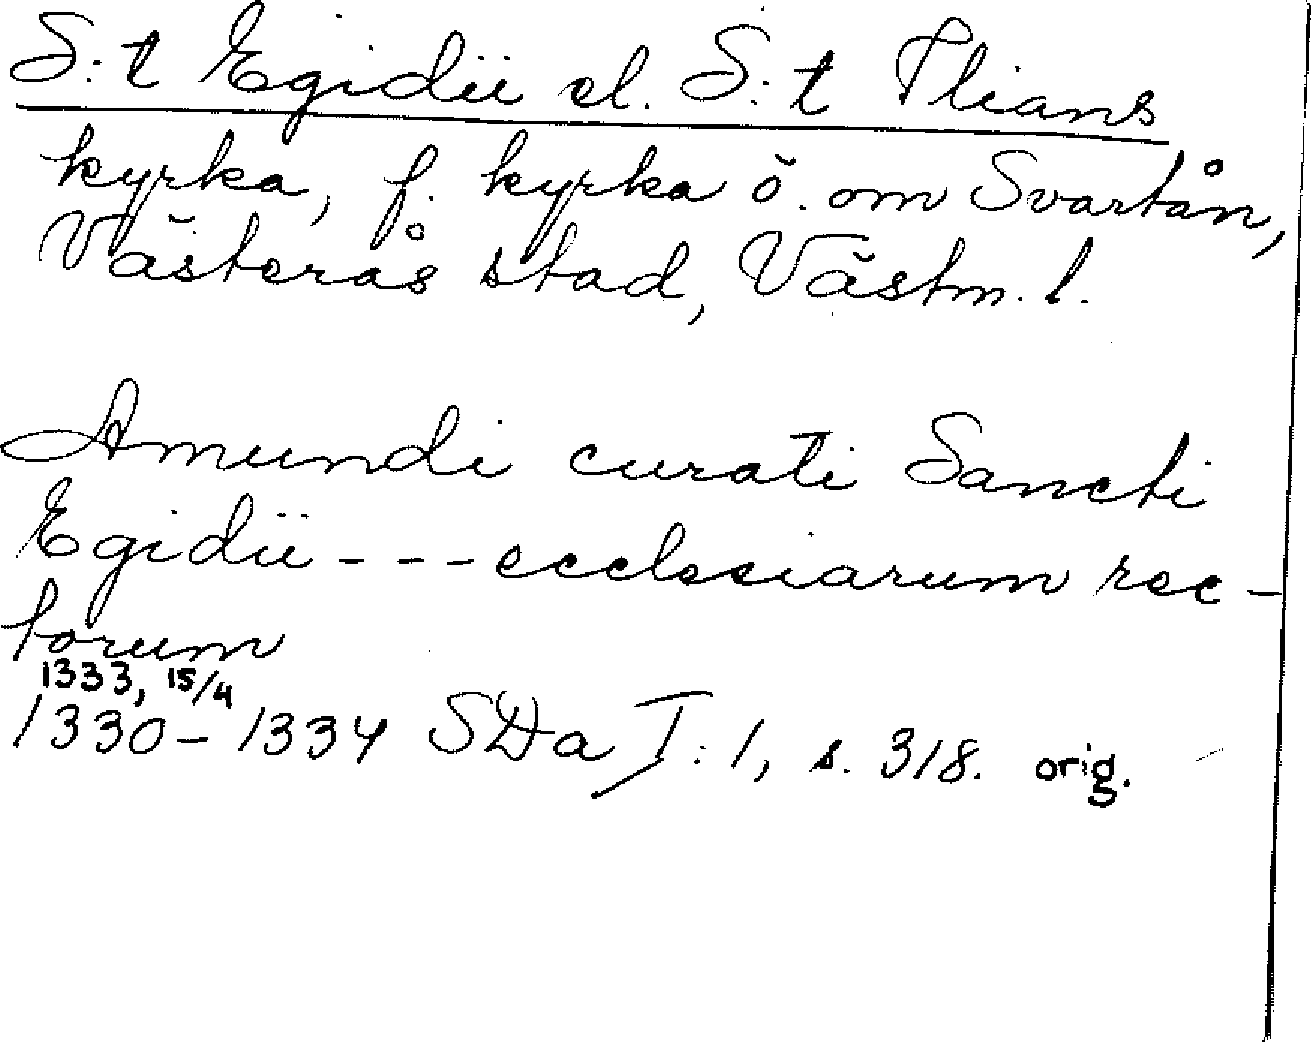 S:t Egidii el. S:t Ilians
kyrka, f. kyrka ö. om Svartån,
Västerås stad, Västm. l.
Amundi curati Sancti
Egidii --- ecclesiarum rec-
torum
1333, 15/4
1330-1334 SDa I:1, s. 318. orig.